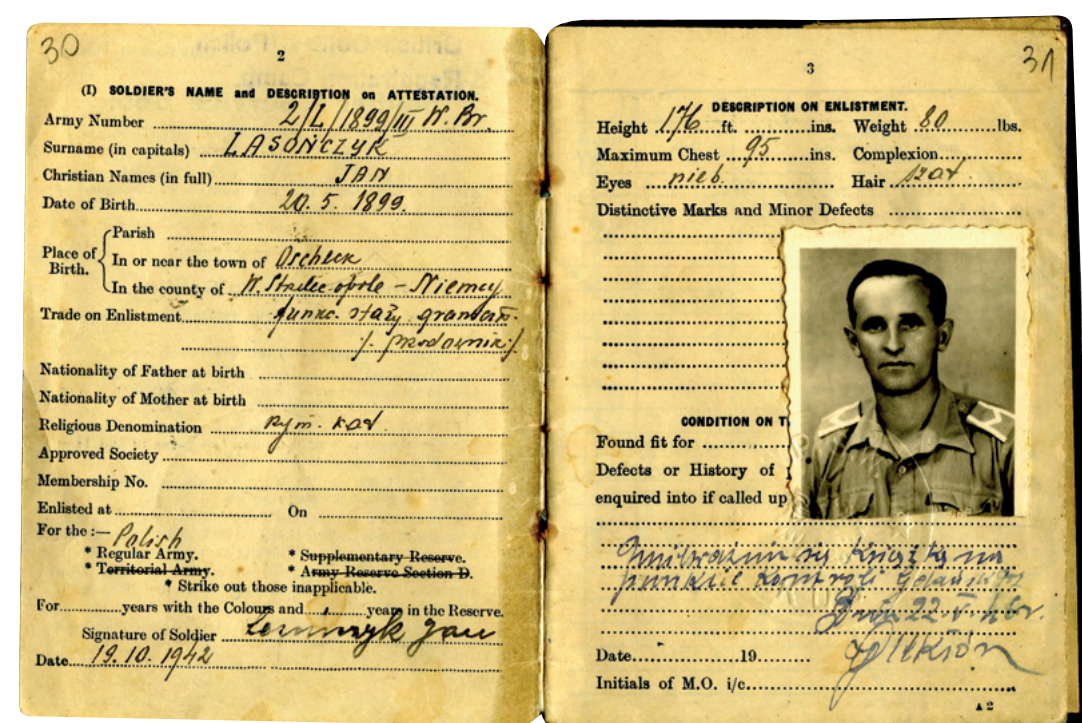 30
2
(I) SOLDIER'S NAME and DESCRIPTION on ATTESTATION.
Army Number 2/L/1899/III W. Br.
Surname (in capitals) LASOŃCZYK
Christian Names (in full) JAN
Date of Birth 20. 5. 1899.
Place of Birth.
Parish
In or near the town of Oscheck
In the county of W. Strelce-opole - Niemcy
Trade on Enlistment funkc. straży
Nationality of Father at birth
Nationality of Mother at birth
Religious Denomination rzym. kat.
Approved Society
Membership No.
Enlisted at On
For the :— Polish
* Regular Army. * Supplementary Reserve.
* Territorial Army. * Army Reserve Section D.
* Strike out those inapplicable.
For years with the Colours and years in the Reserve.
Signature of Soldier Jan
Date 19.10.1942
31
3
DESCRIPTION ON ENLISTMENT.
Height 176 ft. ins. Weight 80 lbs.
Maximum Chest 95 ins. Complexion
Eyes nieb. Hair szat.
Distinctive Marks and Minor Defects
CONDITION ON T
Found fit for
Defects or History of
enquired into if called up
Unieważnia się książkę na
punkcie kontroli Gdańsk
Dnia 22.V.46r.
Date 19
Initials of M.O. i/c.
A 2